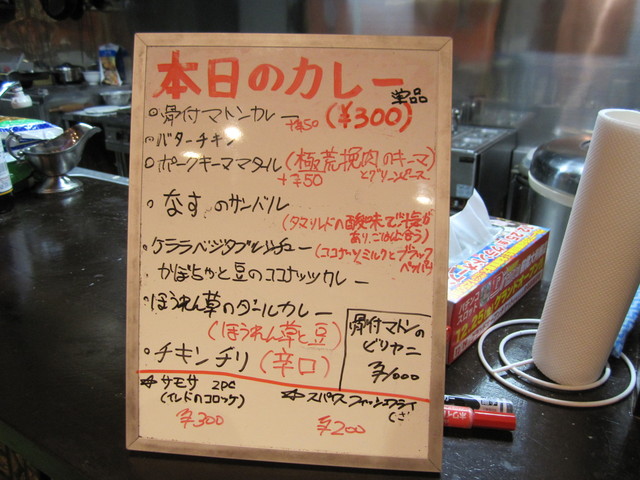 本日のカレー
単品
骨付マトンカレー +¥50 (¥300)
バターチキン
ポークキーママタル (極荒挽肉のキーマ
+¥50 とグリンピース)
なすのサンバル
(タマリンドの酸味で
あり、ごはんに合う)
ケララベジタブルシチュー (ココナーツミルクとブラック
ペッパー)
かぼちゃと豆のココナッツカレー
ほうれん草のダールカレー
(ほうれん草と豆)
チキンチリ (辛口)
骨付マトンの
ビリヤニ
¥1000
サモサ 2pc
(インドのコロッケ)
¥300
スパイスフィッシュフライ
¥200
12.25
グランドオープン